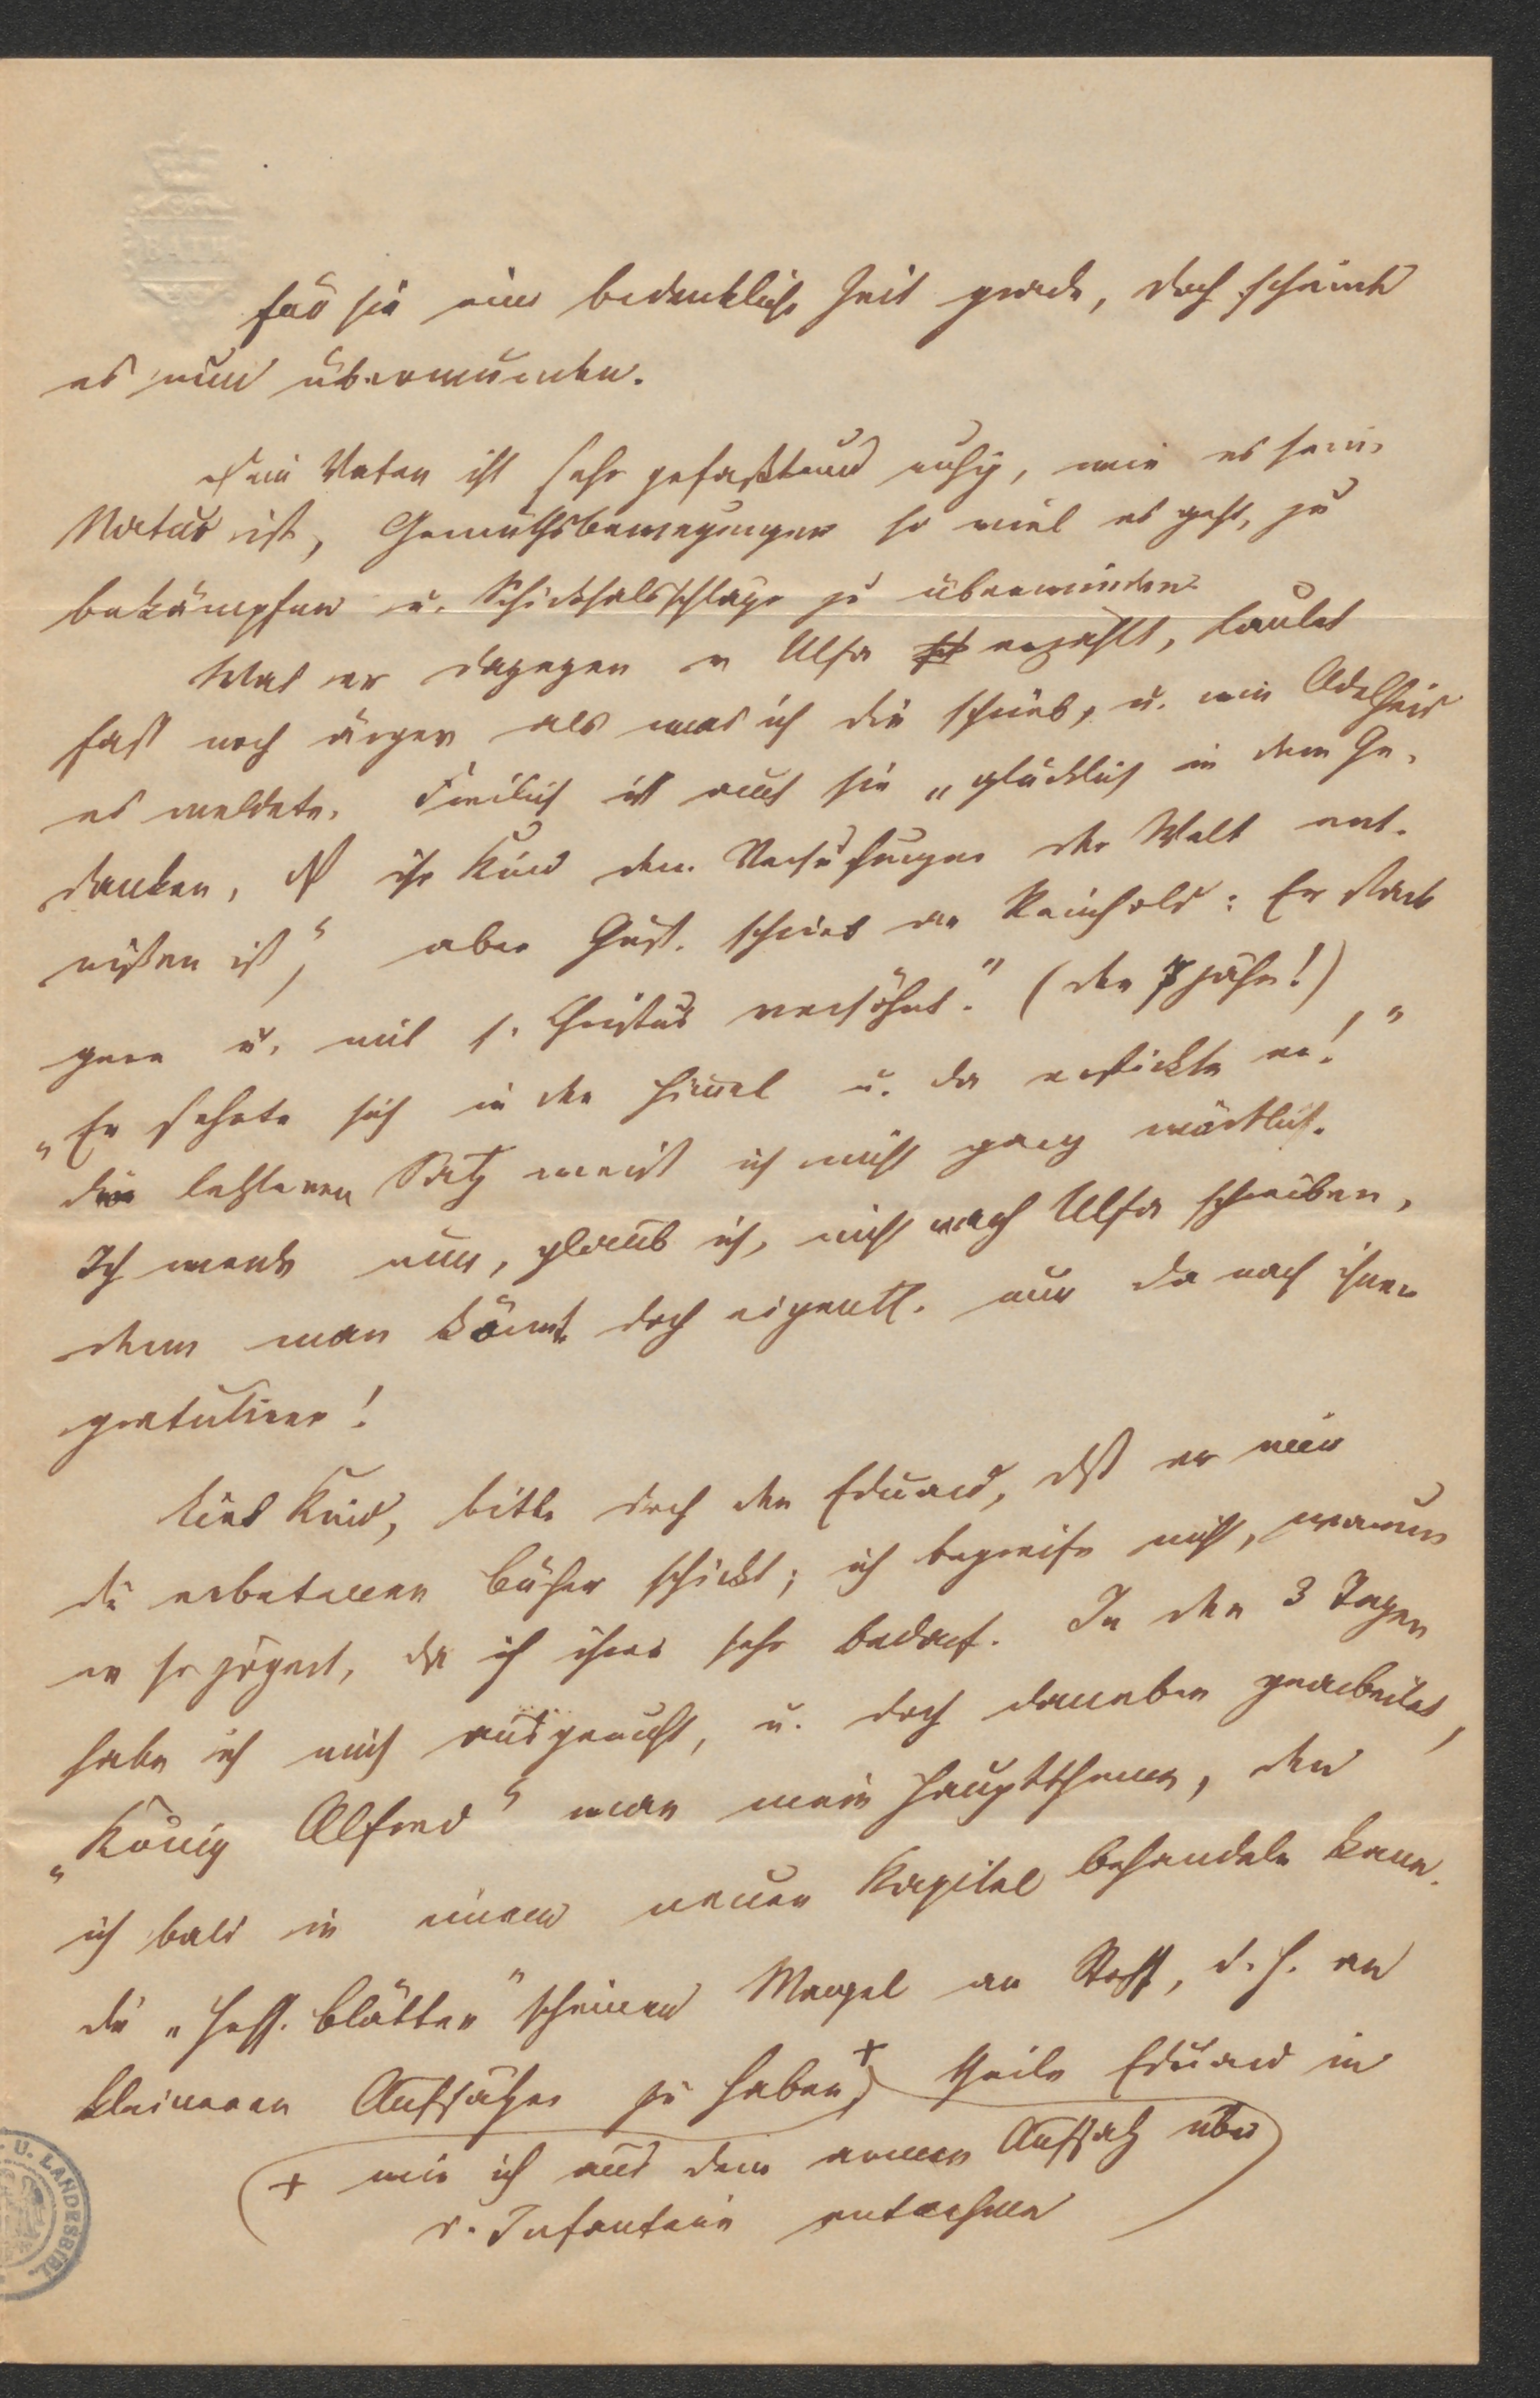 BATH
für sie eine bedenkliche Zeit grade, doch scheint
es nun überwunden.
Dein Vater ist sehr gefaßt und ruhig, wie es sein.
Natur ist, Gemüthsbewegungen so viel es geht, zu
bekämpfen u. Schicksalsschläge zu überwinden.
Was er dagegen v Ulfa erzählt, lautet
fast noch ärger als was ich dir schrieb, u. wie Adelheid
es meldete. Freilich ist auch sie „glücklich in dem Ge-
danken, dß ihr Kind den Versuchungen der Welt ent-
rissen ist," aber Gust. schrieb an Reinhold: Er starb
gern u. mit s. Christus versöhnt." (der 7jähr!)
„Er sehnte sich in den Himmel u. da erstickte er!"
den letzteren Satz weiß ich nicht ganz wörtlich.
Ich werde nun, glaub ich, nicht nach Ulfa schreiben,
denn man könnte doch eigentl. nur da nach ihnen
gratuliren!
Lieb Kind, bitte doch den Eduard, dß er mir
die erbetenen Bücher schickt; ich begreife nicht, warum
er so zögert, da ich ihrer sehr bedarf. In den 3 Tagen
habe ich mich ausgeruht, u. doch daneben gearbeitet,
„König Alfred" war mein Hauptthema, den
ich bald in einem neuen Kapitel behandeln kann.
die „Hess. Blätter" scheinen Mangel an Stoff, d. h. an
kleineren Aufsätzen zu haben + theile Eduard in
+ wie ich aus dem Aufsatz über
d. Infanterie entnehme
U. LANDESBIBL.